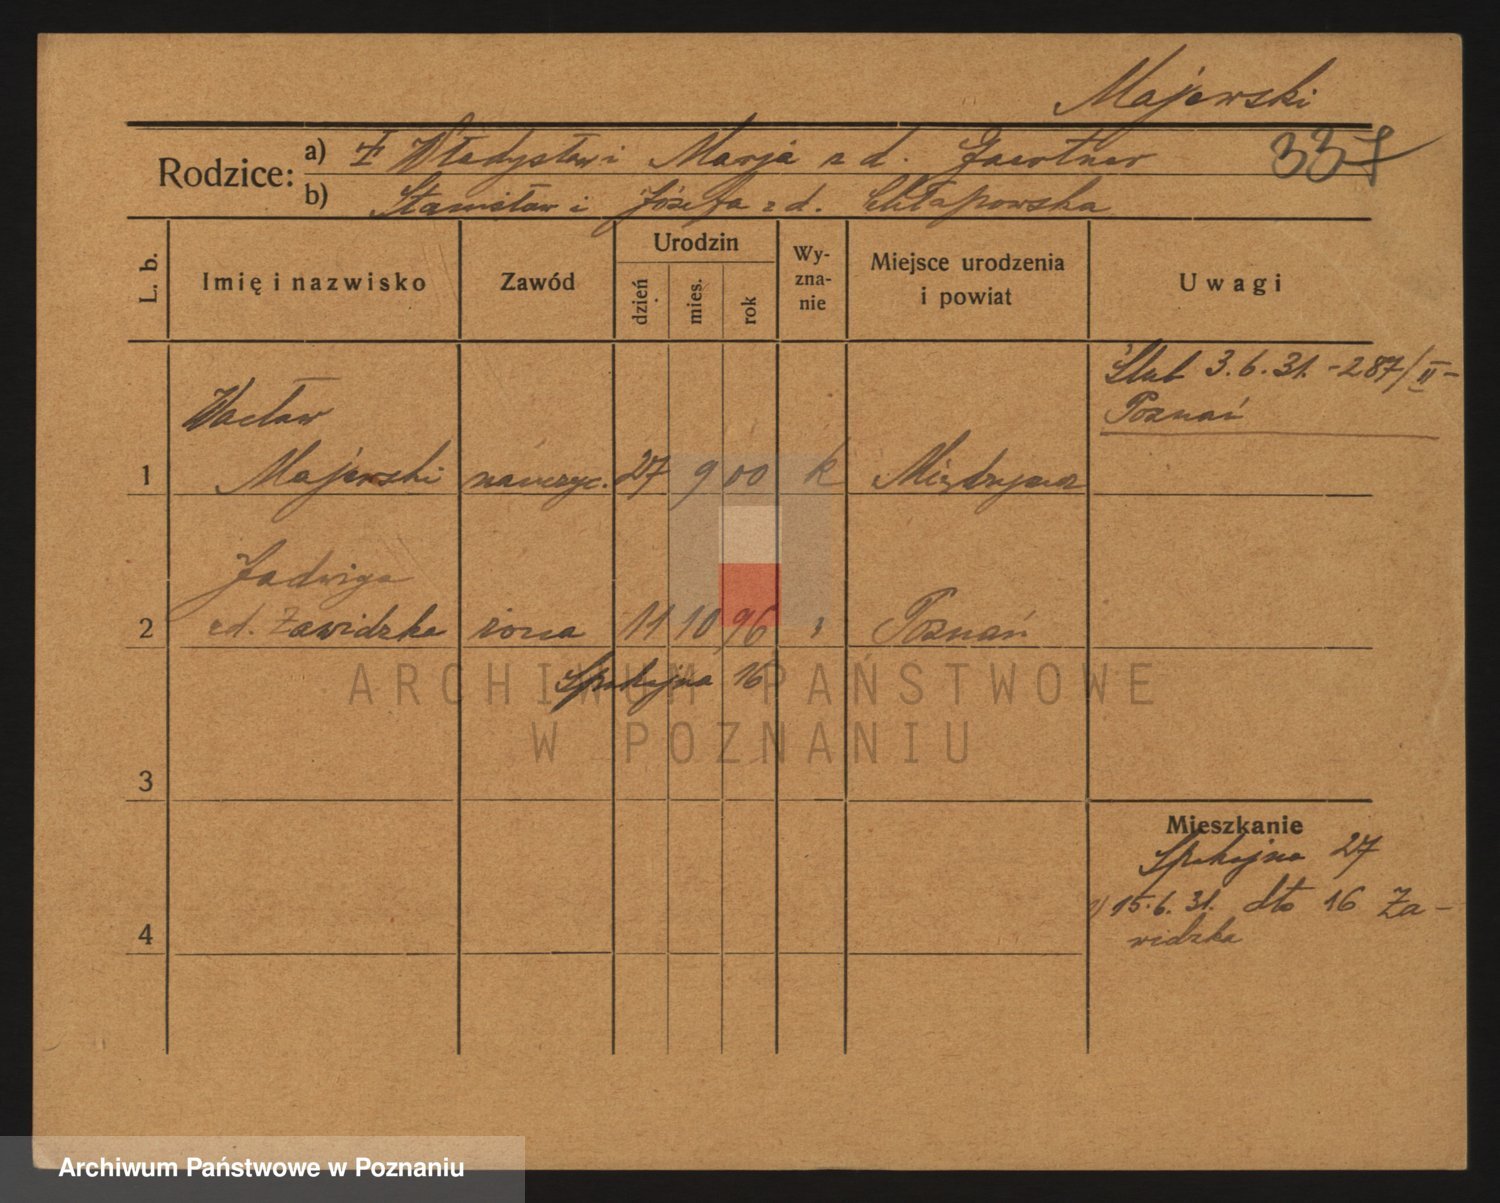 Majewski
337
Rodzice: a) Władysław i Marja z d. Gaertner
b) Stanisław i Józefa z d. Chłapowska
L. b.
Imię i nazwisko
Zawód
Urodzin
dzień
mies.
rok
Wy-
zna-
nie
Miejsce urodzenia
i powiat
Uwagi
Ślub 3.6.31. - 287/II -
Poznań
Wacław
1 Majewski nauczyc. 27 9 00 k
Jadwiga
2 z d. Zawidzka żona 11 10 96 Poznań
Spokojna 16
3
4
Mieszkanie
Spokojna 27
15.6.31. dto 16 Za-
widzka
ARCHIWUM PAŃSTWOWE
W POZNANIU
Archiwum Państwowe w Poznaniu